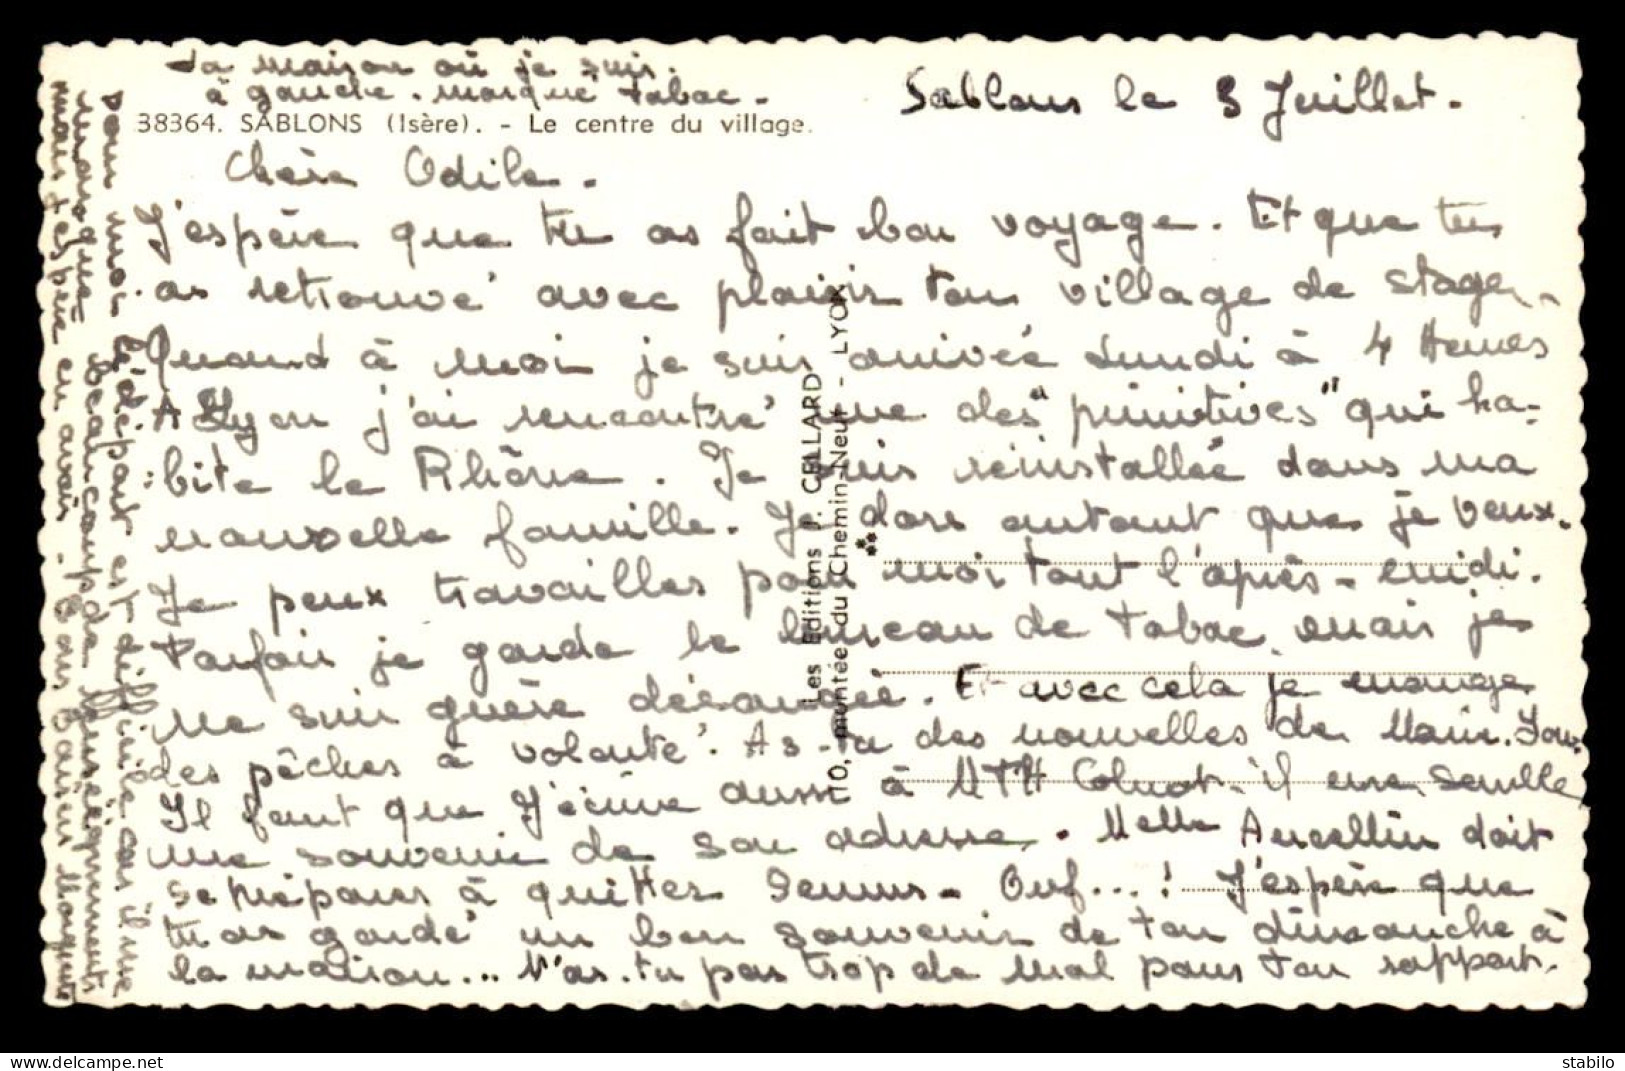 La maison où je suis.
à gauche. marqué tabac -
38364. SABLONS (Isère). - Le centre du village.
Sablons le 3 Juillet.
Chère Odile.
J'espère que tu as fait bon voyage. Et que tu
as retrouvé avec plaisir ton village de stage.
Quand à moi je suis arrivée Lundi à 4 Heures
A Lyon j'ai rencontré une des "primitives" qui ha-
bite le Rhône. Je suis réinstallée dans ma
nouvelle famille. Je dors autant que je veux.
Je peux travailler pour moi tout l'après-midi.
Parfois je garde le bureau de tabac mais je
ne suis guère dérangée. Et avec cela je mange
des pêches à volonté. As-tu des nouvelles de
Il faut que j'écrive aussi à MTH il me semble
me souvenir de son adresse. Melle Ancellin doit
se préparer à quitter Ouf...! J'espère que
tu as gardé un bon souvenir de ton dimanche à
la maison... N'as-tu pas trop de mal pour ton rapport.
pour moi le départ est difficile car il me
manque beaucoup de renseignements
mais j'espère en avoir - Bons baisers Marguerite
Les Editions J. CELLARD
10, montée du Chemin-Neuf - LYON